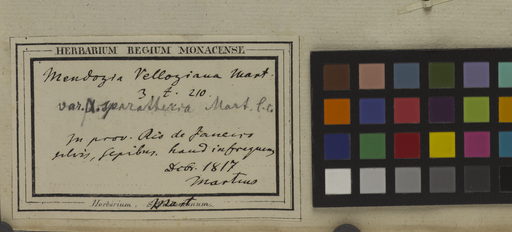 HERBARIUM REGIUM MONACENSE
Mendozia Velloziana Mart.
3, t. 210.
var. Mart. l. c.
In prov. Rio de Janeiro
silvis, sepibus, haud infrequens
Debr. 1817
Martius
Herbarium